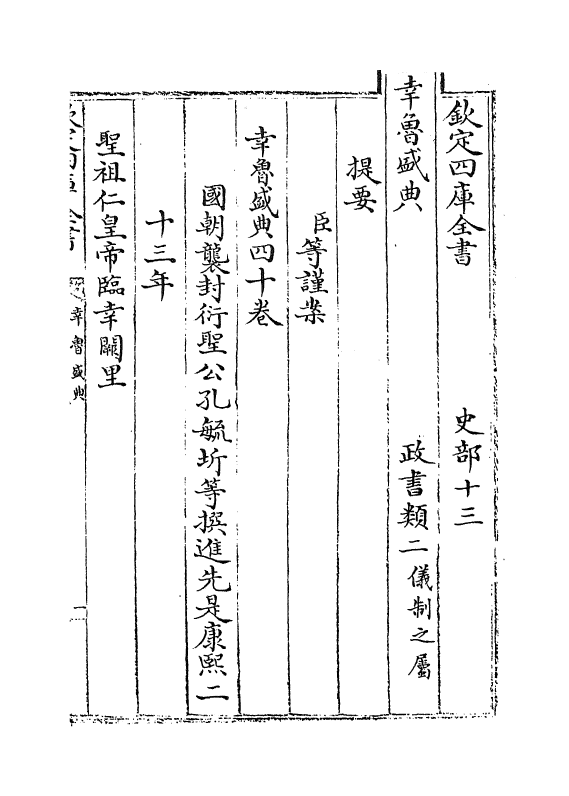 欽定四庫全書　史部十三
幸魯盛典　政書類二儀制之屬
提要
臣等謹案
幸魯盛典四十卷
國朝襲封衍聖公孔毓圻等撰進先是康熙二
十三年
聖祖仁皇帝臨幸闕里
幸魯盛典